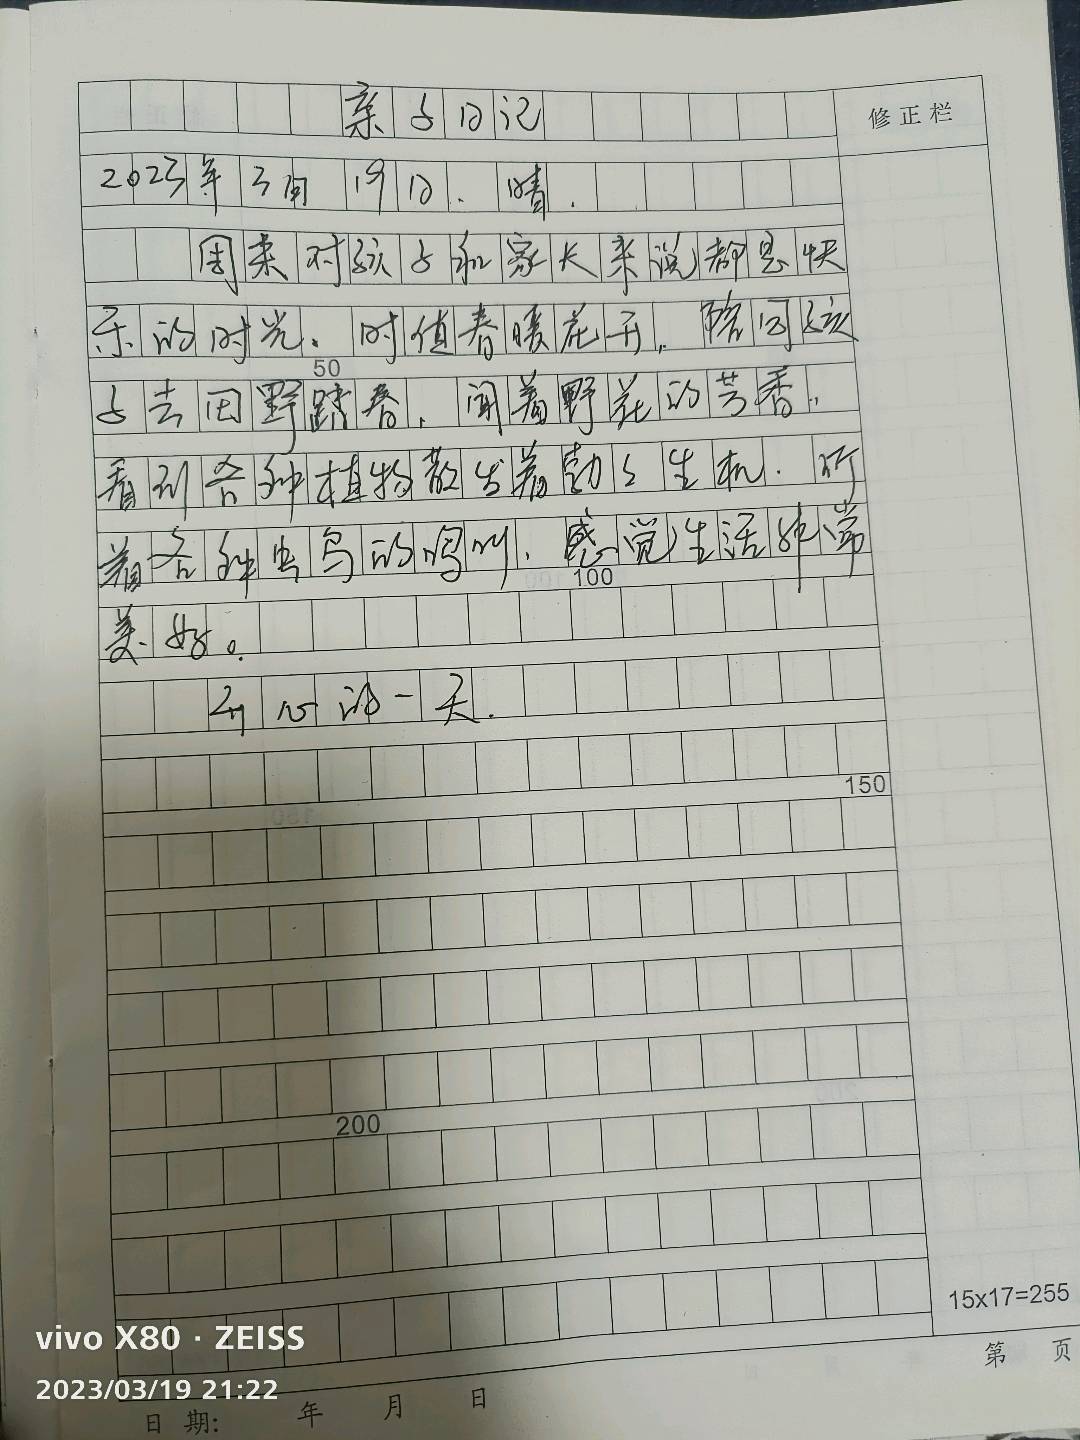 亲子日记
修正栏
2023年3月19日. 晴.
周末对孩子和家长来说都是快
乐的时光. 时值春暖花开, 陪同孩
50
子去田野踏春, 闻着野花的芳香,
看到各种植物散发着勃勃生机. 听
着各种虫鸟的鸣叫, 感觉生活非常
100
美好。
开心的一天.
150
200
15x17=255
vivo X80 · ZEISS
第 页
2023/03/19 21:22
日期: 年 月 日